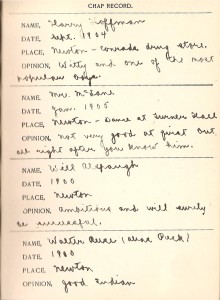 CHAP RECORD.
NAME, Harry Hoffman
DATE, Sept. 1904
PLACE, Newton - drug store.
OPINION, Witty and one of the most
popular boys.
NAME, Mrs. McLane
DATE, Jan. 1905
PLACE, Newton - Dance at Turner Hall
OPINION, not very good at first but
all right after you know him.
NAME, Will Alspaugh
DATE, 1900
PLACE, Newton
OPINION, Ambitious and will surely
be successful.
NAME, Walter
DATE, 1900
PLACE, Newton
OPINION, good Indian